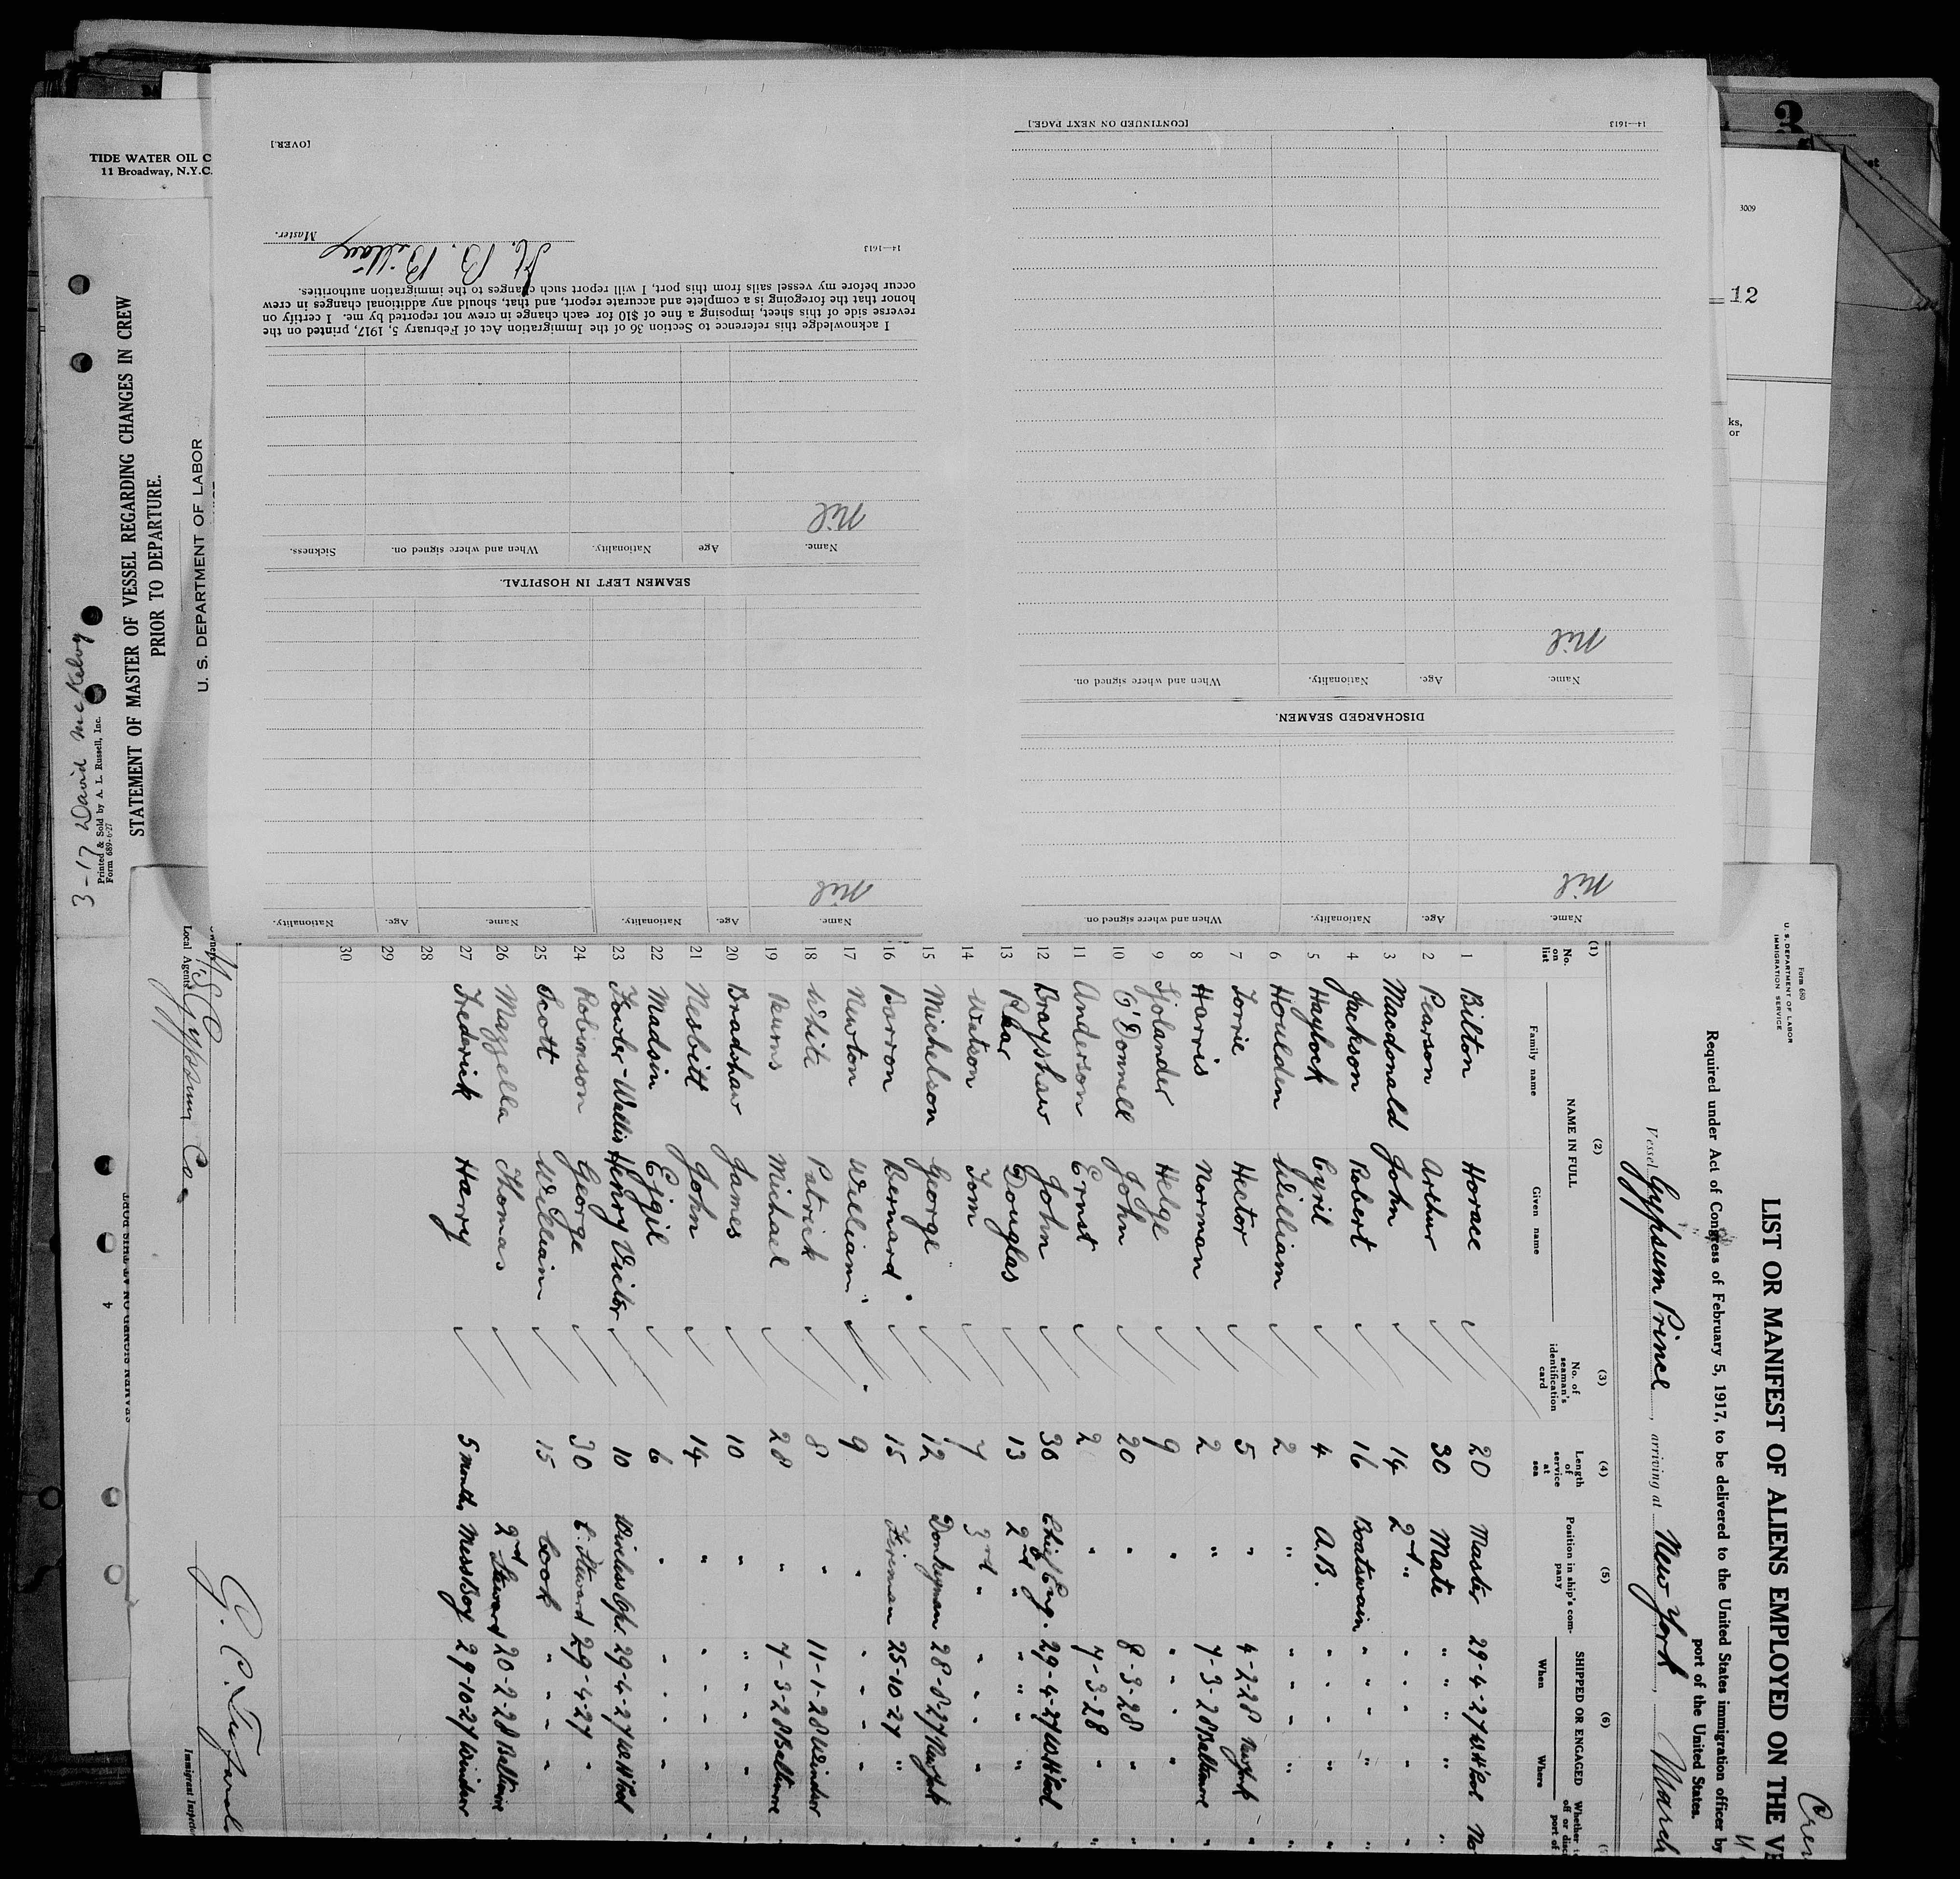 TIDE WATER OIL C
11 Broadway, N.Y.C.
3-17 David McKelvy
Printed & Sold by A. L. Russell, Inc.
Form 689-6-27
STATEMENT OF MASTER OF VESSEL REGARDING CHANGES IN CREW
PRIOR TO DEPARTURE.
U. S. DEPARTMENT OF LABOR
3
3009
12
ks,
or
Name. Age. Nationality. When and where signed on.
Nil
DISCHARGED SEAMEN.
Name. Age. Nationality. When and where signed on.
Nil
14—1613 [CONTINUED ON NEXT PAGE.]
Name. Age. Nationality. Name. Age. Nationality.
Nil
SEAMEN LEFT IN HOSPITAL.
Name. Age Nationality. When and where signed on. Sickness.
Nil
I acknowledge this reference to Section 36 of the Immigration Act of February 5, 1917, printed on the
reverse side of this sheet, imposing a fine of $10 for each change in crew not reported by me. I certify on
honor that the foregoing is a complete and accurate report, and that, should any additional changes in crew
occur before my vessel sails from this port, I will report such changes to the immigration authorities.
14—1613 Master.
[OVER.]
Form 680
U. S. DEPARTMENT OF LABOR
IMMIGRATION SERVICE
LIST OR MANIFEST OF ALIENS EMPLOYED ON THE VE
Required under Act of Congress of February 5, 1917, to be delivered to the United States immigration officer by
port of the United States.
Vessel Gypsum Prince, arriving at New York, March
(1) (2) (3) (4) (5) (6)
No. on list NAME IN FULL No. of seaman's identification card Length of service at sea Position in ship's company SHIPPED OR ENGAGED
Family name Given name When Where
1 Bilton Horace 20 Master 29-4-27 W.H'Pool No
2 Pearson Arthur 30 Mate " " "
3 Macdonald John 14 2nd " " "
4 Jackson Robert 16 Boatswain " " "
5 Haylock Cyril 4 A.B. " " "
6 Houlden William 2 " " " "
7 Torrie Hector 5 " 4-2-28 New York "
8 Harris Norman 2 " 7-3-28 Baltimore "
9 Sjolander Helge 9 " " " "
10 O'Donnell John 20 " 8-3-28 " "
11 Anderson Ernst 2 " 7-3-28 " "
12 Brayshaw John 30 Chief Eng. 29-4-27 W.H'Pool "
13 Rhar Douglas 13 2nd " " " "
14 Watson Tom 7 3rd " " " "
15 Michelson George 12 Donkeyman 28-8-27 New York "
16 Barron Bernard 15 Fireman 25-10-27 " "
17 Newton William 9 " " " "
18 White Patrick 8 " 11-1-28 Windsor "
19 Burns Michael 28 " 7-3-28 Baltimore "
20 Bradshaw James 10 " " " "
21 Nesbitt John 14 " " " "
22 Madsin Ejgil 6 " " " "
23 Fowler-Wallis Henry Victor 10 Wireless Opr. 29-4-27 W.H'Pool "
24 Robinson George 30 C. Steward 29-4-27 " "
25 Scott William 15 Cook " " "
26 Mazzella Thomas 2nd Steward 20-2-28 Baltimore
27 Frederick Harry 5 months Mess Boy 29-10-27 Windsor
28
29
30
Owners U.S. Gypsum Co.
Local Agents
Immigrant Inspector
SEAMEN SIGNED ON AT THIS PORT
4